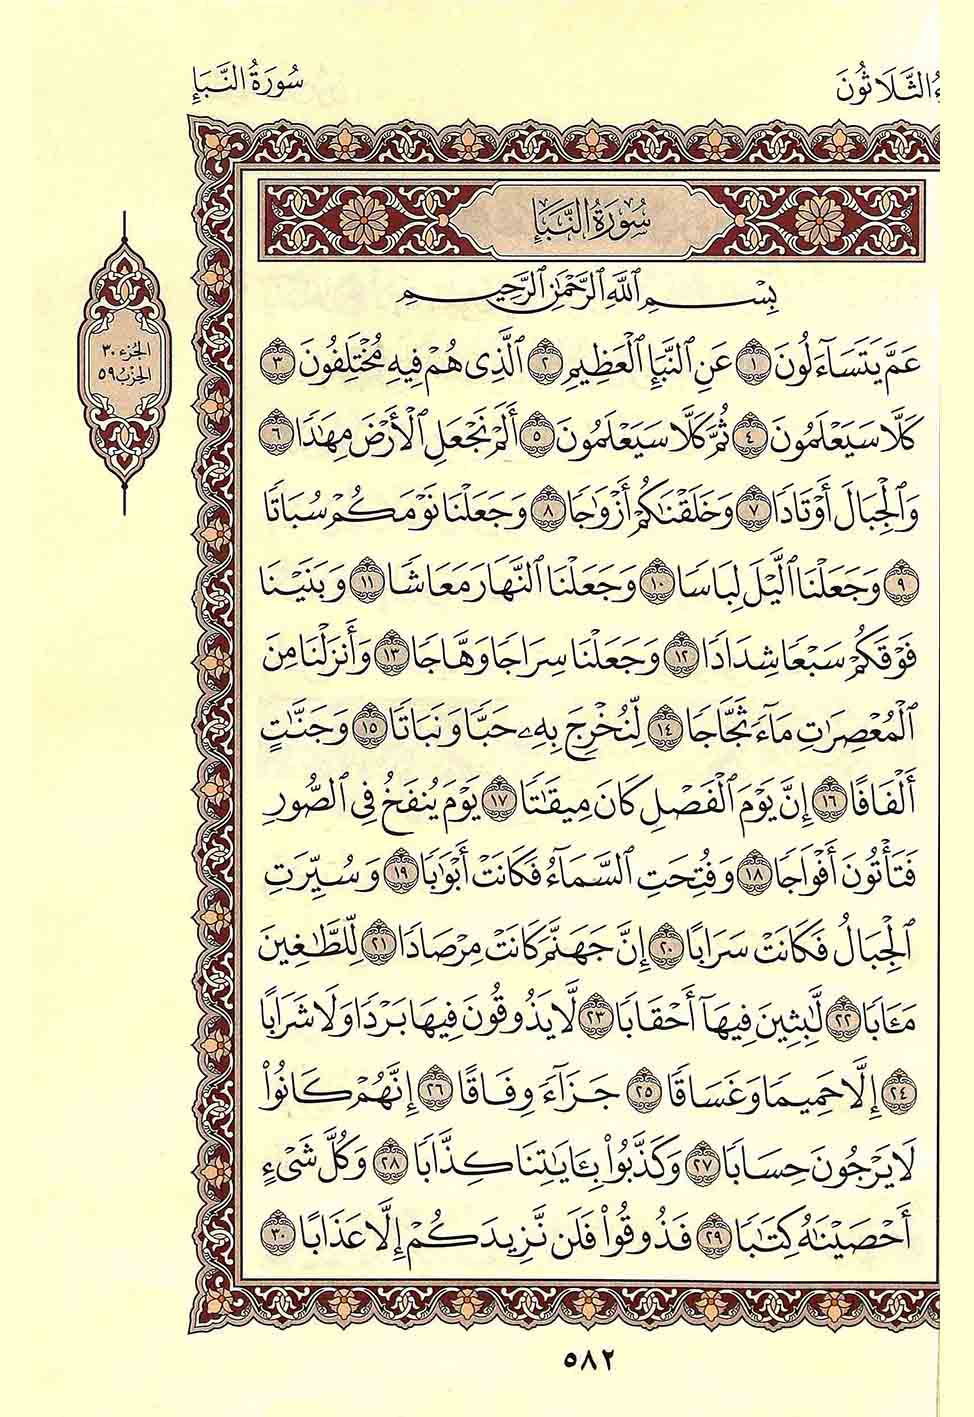 ءُ الثَّلَاثُونَ
سُورَةُ النَّبَإِ
سُورَةُ النَّبَإِ
بِسْمِ ٱللَّهِ ٱلرَّحْمَٰنِ ٱلرَّحِيمِ
عَمَّ يَتَسَآءَلُونَ ١ عَنِ ٱلنَّبَإِ ٱلْعَظِيمِ ٢ ٱلَّذِى هُمْ فِيهِ مُخْتَلِفُونَ ٣
كَلَّا سَيَعْلَمُونَ ٤ ثُمَّ كَلَّا سَيَعْلَمُونَ ٥ أَلَمْ نَجْعَلِ ٱلْأَرْضَ مِهَٰدًا ٦
وَٱلْجِبَالَ أَوْتَادًا ٧ وَخَلَقْنَٰكُمْ أَزْوَٰجًا ٨ وَجَعَلْنَا نَوْمَكُمْ سُبَاتًا
٩ وَجَعَلْنَا ٱلَّيْلَ لِبَاسًا ١٠ وَجَعَلْنَا ٱلنَّهَارَ مَعَاشًا ١١ وَبَنَيْنَا
فَوْقَكُمْ سَبْعًا شِدَادًا ١٢ وَجَعَلْنَا سِرَاجًا وَهَّاجًا ١٣ وَأَنزَلْنَا مِنَ
ٱلْمُعْصِرَٰتِ مَآءً ثَجَّاجًا ١٤ لِّنُخْرِجَ بِهِۦ حَبًّا وَنَبَاتًا ١٥ وَجَنَّٰتٍ
أَلْفَافًا ١٦ إِنَّ يَوْمَ ٱلْفَصْلِ كَانَ مِيقَٰتًا ١٧ يَوْمَ يُنفَخُ فِى ٱلصُّورِ
فَتَأْتُونَ أَفْوَاجًا ١٨ وَفُتِحَتِ ٱلسَّمَآءُ فَكَانَتْ أَبْوَٰبًا ١٩ وَسُيِّرَتِ
ٱلْجِبَالُ فَكَانَتْ سَرَابًا ٢٠ إِنَّ جَهَنَّمَ كَانَتْ مِرْصَادًا ٢١ لِّلطَّٰغِينَ
مَـَٔابًا ٢٢ لَّٰبِثِينَ فِيهَآ أَحْقَابًا ٢٣ لَّا يَذُوقُونَ فِيهَا بَرْدًا وَلَا شَرَابًا
٢٤ إِلَّا حَمِيمًا وَغَسَاقًا ٢٥ جَزَآءً وِفَاقًا ٢٦ إِنَّهُمْ كَانُوا۟
لَا يَرْجُونَ حِسَابًا ٢٧ وَكَذَّبُوا۟ بِـَٔايَٰتِنَا كِذَّابًا ٢٨ وَكُلَّ شَىْءٍ
أَحْصَيْنَٰهُ كِتَٰبًا ٢٩ فَذُوقُوا۟ فَلَن نَّزِيدَكُمْ إِلَّا عَذَابًا ٣٠
الجُزء ٣٠
الحِزب ٥٩
٥٨٢